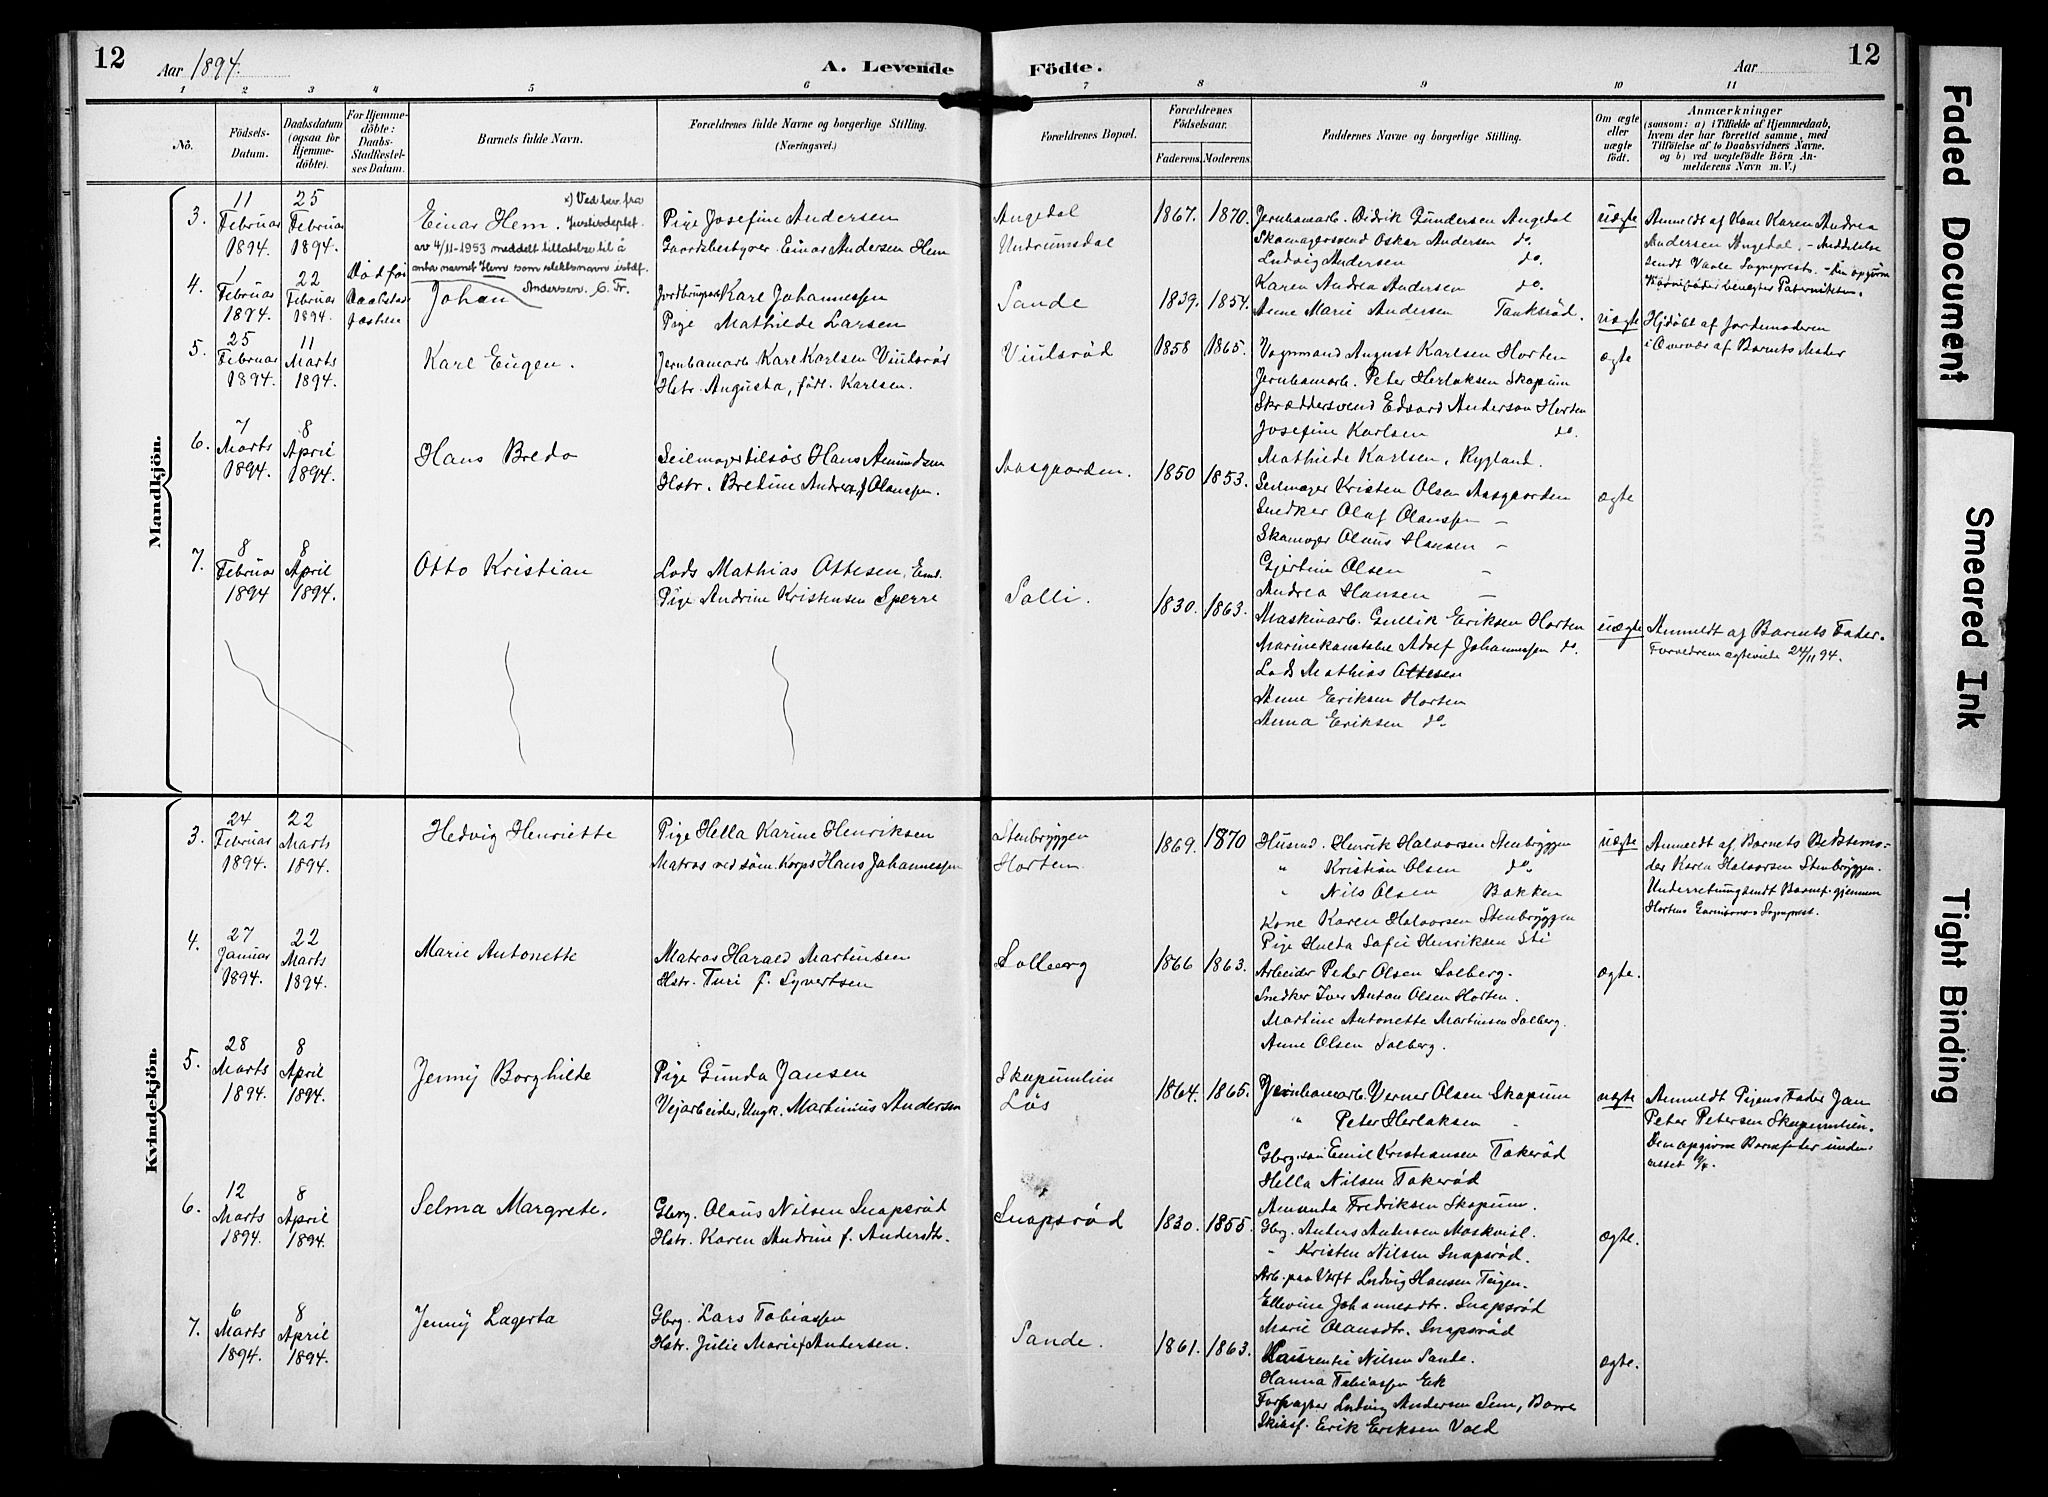 12
Aar 1894.
A. Levende
Födte.
Aar
12
1 2 3 4 5 6 7 8 9 10 11
No.
Födsels-
Datum.
Daabsdatum
(ogsaa for
Hjemme-
döbte).
For Hjemme-
döbte:
Daabs-
Stadfæstel-
ses Datum.
Barnets fulde Navn.
Forældrenes fulde Navne og borgerlige Stilling.
(Næringsvei.)
Forældrenes Bopæl.
Forældrenes
Födselsaar.
Faderens. Moderens.
Faddernes Navne og borgerlige Stilling.
Om ægte
eller
uægte
födt.
Anmærkninger
(saasom: a) i Tilfælde af Hjemmedaab,
hvem der har forrettet samme, med
Tilföielse af to Daabsvidners Navne.
og b) ved uægtefödte Börn An-
melderens Navn m. V.)
Mandkjön.
3.
11
Februar
1894.
25
Februar
1894.
Einar Hem.
x) Ved bev. fra
Justisdeptet
av 4/11-1953 meddelt tillatelse til å
anta navnet Hem som slektsnavn istdf.
Andersen.
Pige Josefine Andersen
Gaardsbestyrer Einar Andersen Hem
Angedal
Undrumsdal
1867. 1870.
Jernbanearb. Didrik Gundersen Angedal
Skomagersvend Oskar Andersen do.
Ludvig Andersen do.
Karen Andrea Andersen do.
Anne Marie Andersen Tanksröd.
uægte
Anmeldt af Kone Karen Andrea
Andersen Angedal. - Meddelelse
sendt Vaale Sognepræst. - Den opgivne
Barnefader benægter Paterniteten.
4.
1
Februar
1894
22
Februar
1894.
Död før
Daabsstad-
fæstelse
Johan
Jordbrugsarb Karl Johannessen
Pige Mathilde Larsen
Sande
1839. 1854.
uægte
Hjdöbt af Jordemoderen
i Overvær af Barnets Moder
5.
25
Februar
1894.
11
Marts
1894.
Karl Eugen.
Jernbanearb Karl Karlsen Viulsröd
Hstr. Augusta, födt. Karlsen.
Viulsröd
1858 1865.
Vognmand August Karlsen Horten
Jernbanearb. Peter Herlaksen Skopum
Skræddersvend Edvard Anderson Horten
Josefine Karlsen do.
Mathilde Karlsen, Rygland.
ægte
6.
7
Marts
1894.
8
April
1894.
Hans Bredo
Seilmagertilsös Hans Amundsen
Hstr. Bredine Andrea f Olaussen.
Aasgaarden.
1850 1853.
Seilmager Kristen Olsen Aasgaarden
Snedker Oluf Olaussen -
Skomager Olaus Hansen -
Gjertine Olsen -
Andrea Hansen -
ægte
7.
8
Februar
1894
8
April
1894.
Otto Kristian
Lods Mathias Ottesen, Enk.
Pige Andrine Kristensen Sperre
Solli.
1830. 1863.
Maskinarb. Gullik Eriksen Horten
Marinekonstabel Adolf Johannessen do.
Lods Mathias Ottesen
Anne Eriksen Horten
Anna Eriksen do.
uægte
Anmeldt af Barnets Fader.
Forældrene ægteviede 24/11 94.
Kvindekjön.
3.
24
Februar
1894.
22
Marts
1894.
Hedvig Henriette
Pige Hella Karine Henriksen
Matros ved söm. Korps Hans Johannessen
Stenbryggen
Horten
1869. 1870
Husmd. Henrik Halvorsen Stenbryggen
" Kristian Olsen do.
" Nils Olsen Bakken
Kone Karen Halvorsen Stenbryggen
Pige Hulda Sofie Henriksen Sti
uægte
Anmeldt af Barnets Bedstemo-
der Karen Halvorsen Stenbryggen.
Underretning sendt Barnef. gjennem
Hortens Garnisons Sognepræst.
4.
27
Januar
1894.
22
Marts
1894.
Marie Antonette
Matros Harald Martinsen
Hstr. Turi f. Syvertsen
Solberg
1866 1863.
Arbeider Peder Olsen Solberg.
Snedker Iver Anton Olsen Horten.
Martine Antonette Martinsen Solberg.
Anne Olsen Solberg.
ægte.
5.
28
Marts
1894.
8
April
1894.
Jenny Borghilde
Pige Gunda Jansen
Vejarbeider, Ungk. Martinius Andersen
Skopumlien
Lös
1864. 1865.
Jernbanearb. Verner Olsen Skopum
" Peter Herlaksen
Gbrg.sön Emil Kristiansen Takeröd
Hella Nilsen Takeröd
Amanda Fredriksen Skopum.
uægte
Anmeldt Pigens Fader Jan
Peter Petersen Skopumlien.
Den opgivne Barnefader under-
rettet 9/4.
6.
12
Marts
1894.
8
April
1894.
Selma Margrete.
Gbrg. Olaus Nilsen Snapsröd
Hstr. Karen Andrine f. Andersdtr.
Snapsröd
1830. 1855.
Gbrg. Anders Andersen Moskvisl.
" Kristen Nilsen Snapsröd.
Arb. paa Verft Ludvig Hansen Teigen.
Ellevine Johannesdtr. Snapsröd
Marie Olausdtr. Snapsröd
ægte.
7.
6
Marts
1894.
8
April
1894.
Jenny Lagerta
Gbrg. Lars Tobiassen
Hstr. Julie Marie f Andersen.
Sande.
1861. 1863.
Laurentie Nilsen Sande.
Hanna Tobiassen Eek
Forpagter Ludvig Andersen Sem, Borre
Skibsf. Erik Eriksen Vold
ægte.
Faded Document
Smeared Ink
Tight Binding